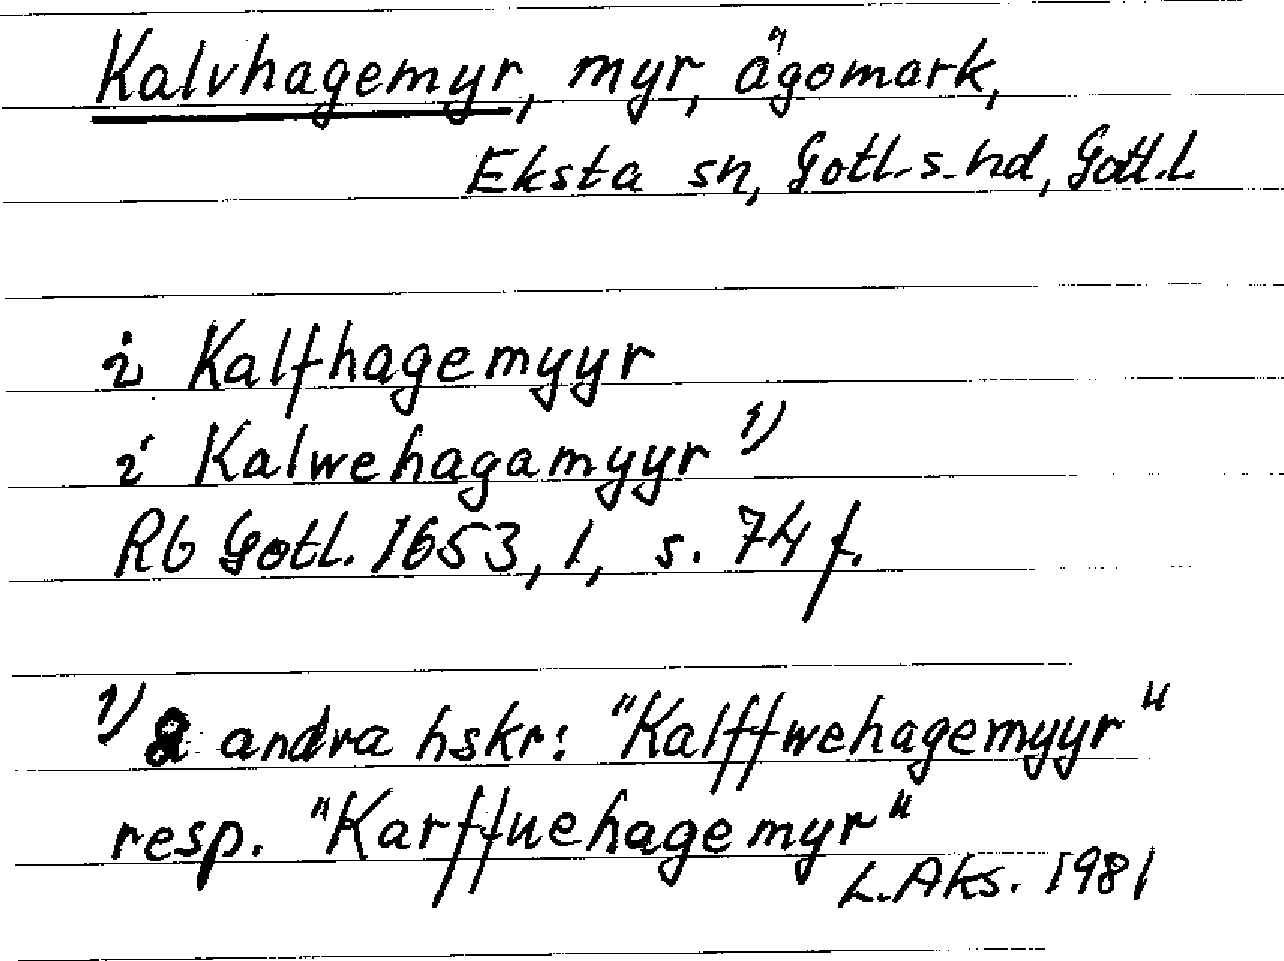 Kalvhagemyr, myr, ägomark,
Eksta sn, Gotl. s. hd, Gotl. l.
i Kalfhagemyyr
i Kalwehagamyyr 1)
Rb Gotl. 1653, 1, s. 74 f.
1) 2 andra hskr: "Kalffwehagemyyr"
resp. "Karffuehagemyr"
L. Aks. 1981